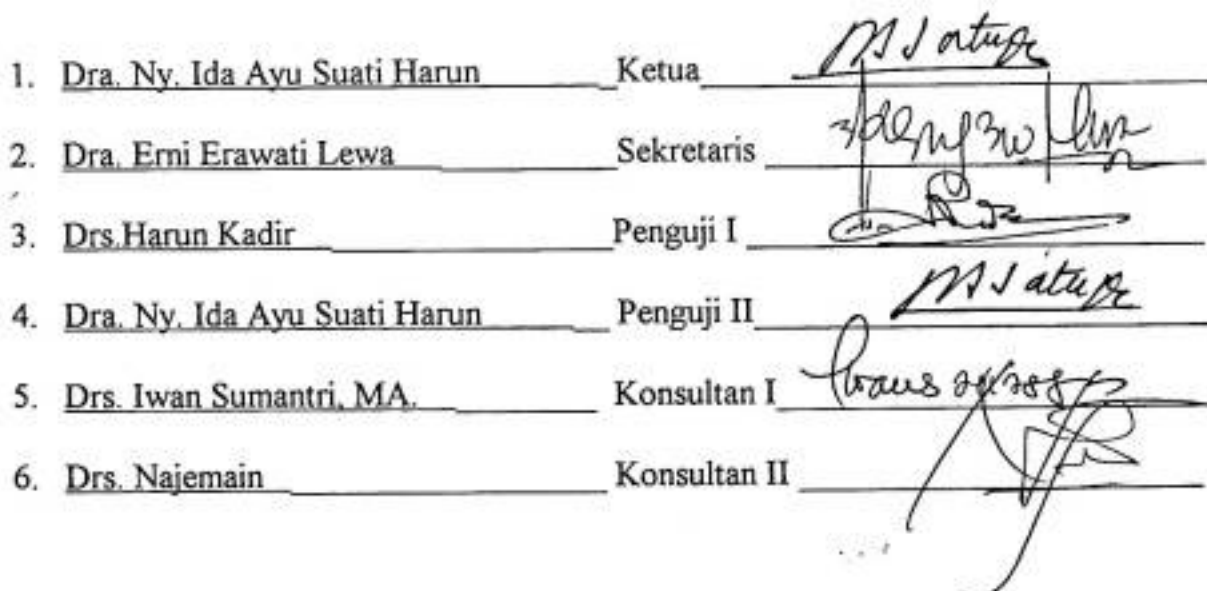 1. Dra. Ny. Ida Ayu Suati Harun Ketua
2. Dra. Erni Erawati Lewa Sekretaris
3. Drs.Harun Kadir Penguji I
4. Dra. Ny. Ida Ayu Suati Harun Penguji II
5. Drs. Iwan Sumantri, MA. Konsultan I
6. Drs. Najemain Konsultan II